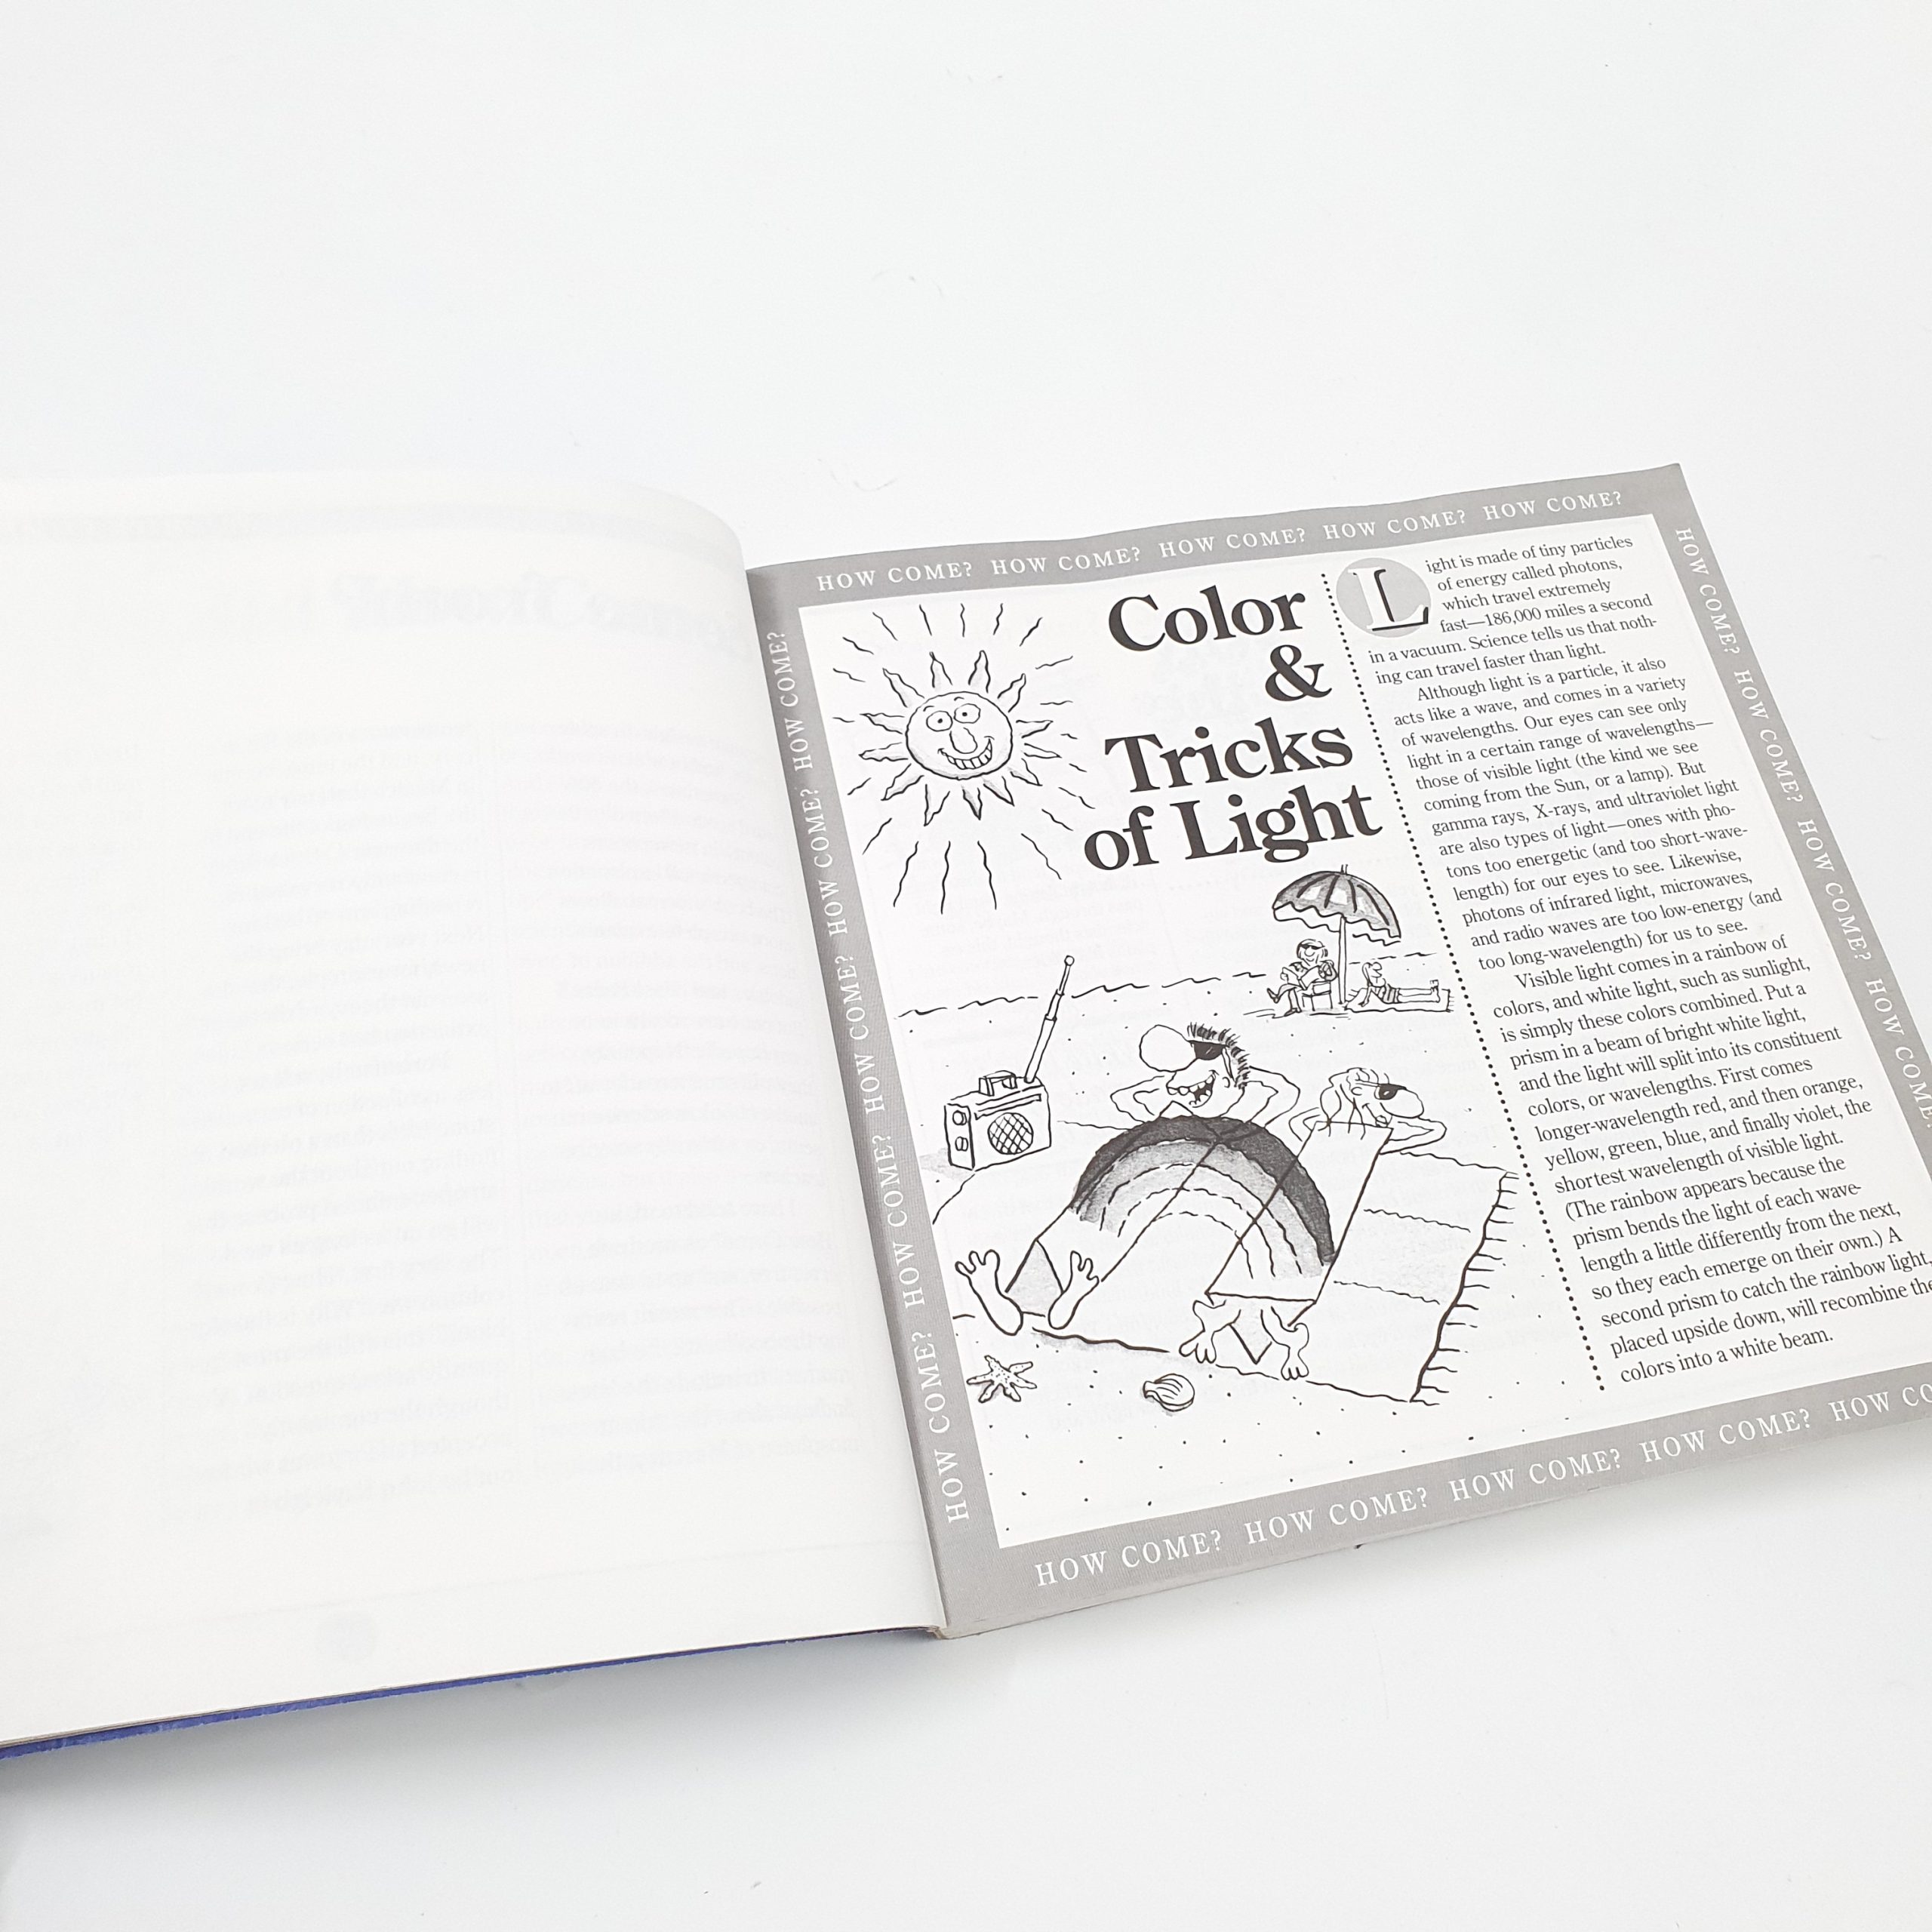 HOW COME? HOW COME? HOW COME? HOW COME? HOW COME?
HOW COME? HOW COME? HOW COME? HOW COME? HOW COME? HOW COME?
Color
&
Tricks
of Light
Light is made of tiny particles
of energy called photons,
which travel extremely
fast—186,000 miles a second
in a vacuum. Science tells us that noth-
ing can travel faster than light.
Although light is a particle, it also
acts like a wave, and comes in a variety
of wavelengths. Our eyes can see only
light in a certain range of wavelengths—
those of visible light (the kind we see
coming from the Sun, or a lamp). But
gamma rays, X-rays, and ultraviolet light
are also types of light—ones with pho-
tons too energetic (and too short-wave-
length) for our eyes to see. Likewise,
photons of infrared light, microwaves,
and radio waves are too low-energy (and
too long-wavelength) for us to see.
Visible light comes in a rainbow of
colors, and white light, such as sunlight,
is simply these colors combined. Put a
prism in a beam of bright white light,
and the light will split into its constituent
colors, or wavelengths. First comes
longer-wavelength red, and then orange,
yellow, green, blue, and finally violet, the
shortest wavelength of visible light.
(The rainbow appears because the
prism bends the light of each wave-
length a little differently from the next,
so they each emerge on their own.) A
second prism to catch the rainbow light,
placed upside down, will recombine the
colors into a white beam.
HOW COME? HOW COME? HOW COME? HOW COME?
HOW COME? HOW COME? HOW COME? HOW COME? HOW